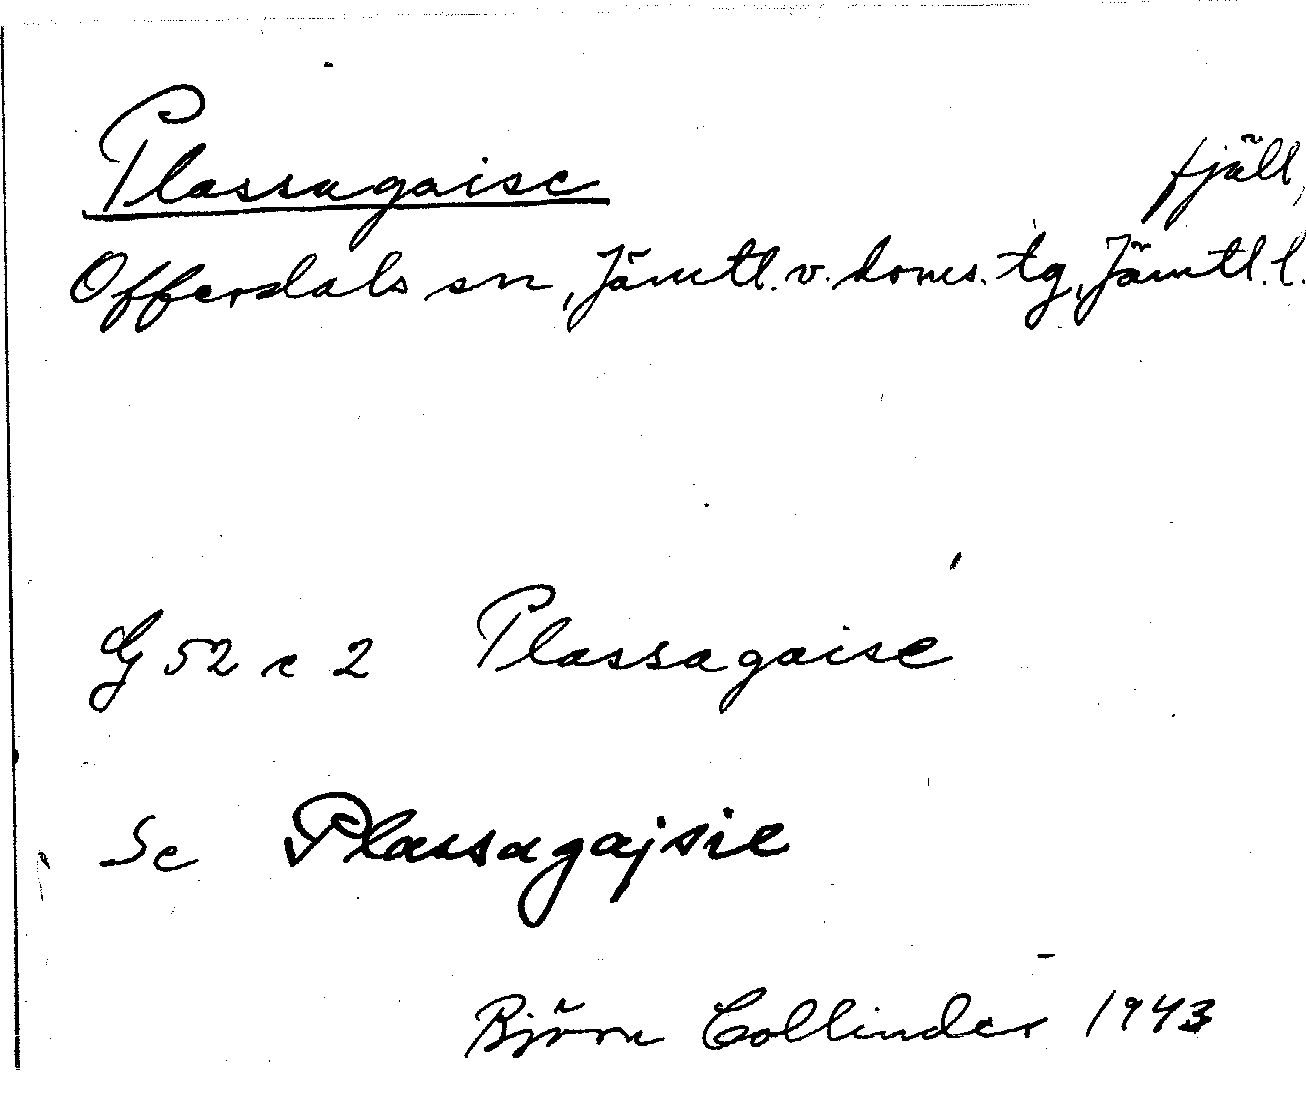 Plassagaise fjäll,
Offerdals sn, Jämtl. v. doms. tg, Jämtl. l.
G 52 c 2 Plassagaise
Se Plassagajsie
Björn Collinder 1943